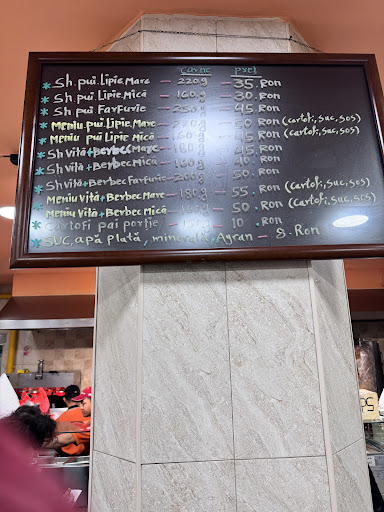 carne preț
* Sh. pui. Lipie. Mare - 220g - 35. Ron
* Sh. pui. Lipie. Mică - 160g - 30. Ron
* Sh. pui Farfurie - 250g - 45. Ron
* Meniu pui Lipie. Mare - 50. Ron (cartofi, suc, sos)
* Meniu pui Lipie Mică - 45. Ron (cartofi, suc, sos)
* Sh vită + Berbec Mare - 45. Ron
* Sh vită + Berbec Mică - 160g - 40. Ron
* Sh vită + Berbec Farfurie - 200g - 50. Ron
* Meniu Vită + Berbec Mare - 180g - 55. Ron (cartofi, suc, sos)
* Meniu Vită + Berbec Mică - 50. Ron (cartofi, suc, sos)
* Cartofi pai porție - 10. Ron
* SUC, apă plată, minerală, Ayran - 8. Ron